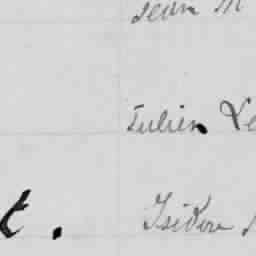 Jean M
Julien Le
t. Isidore